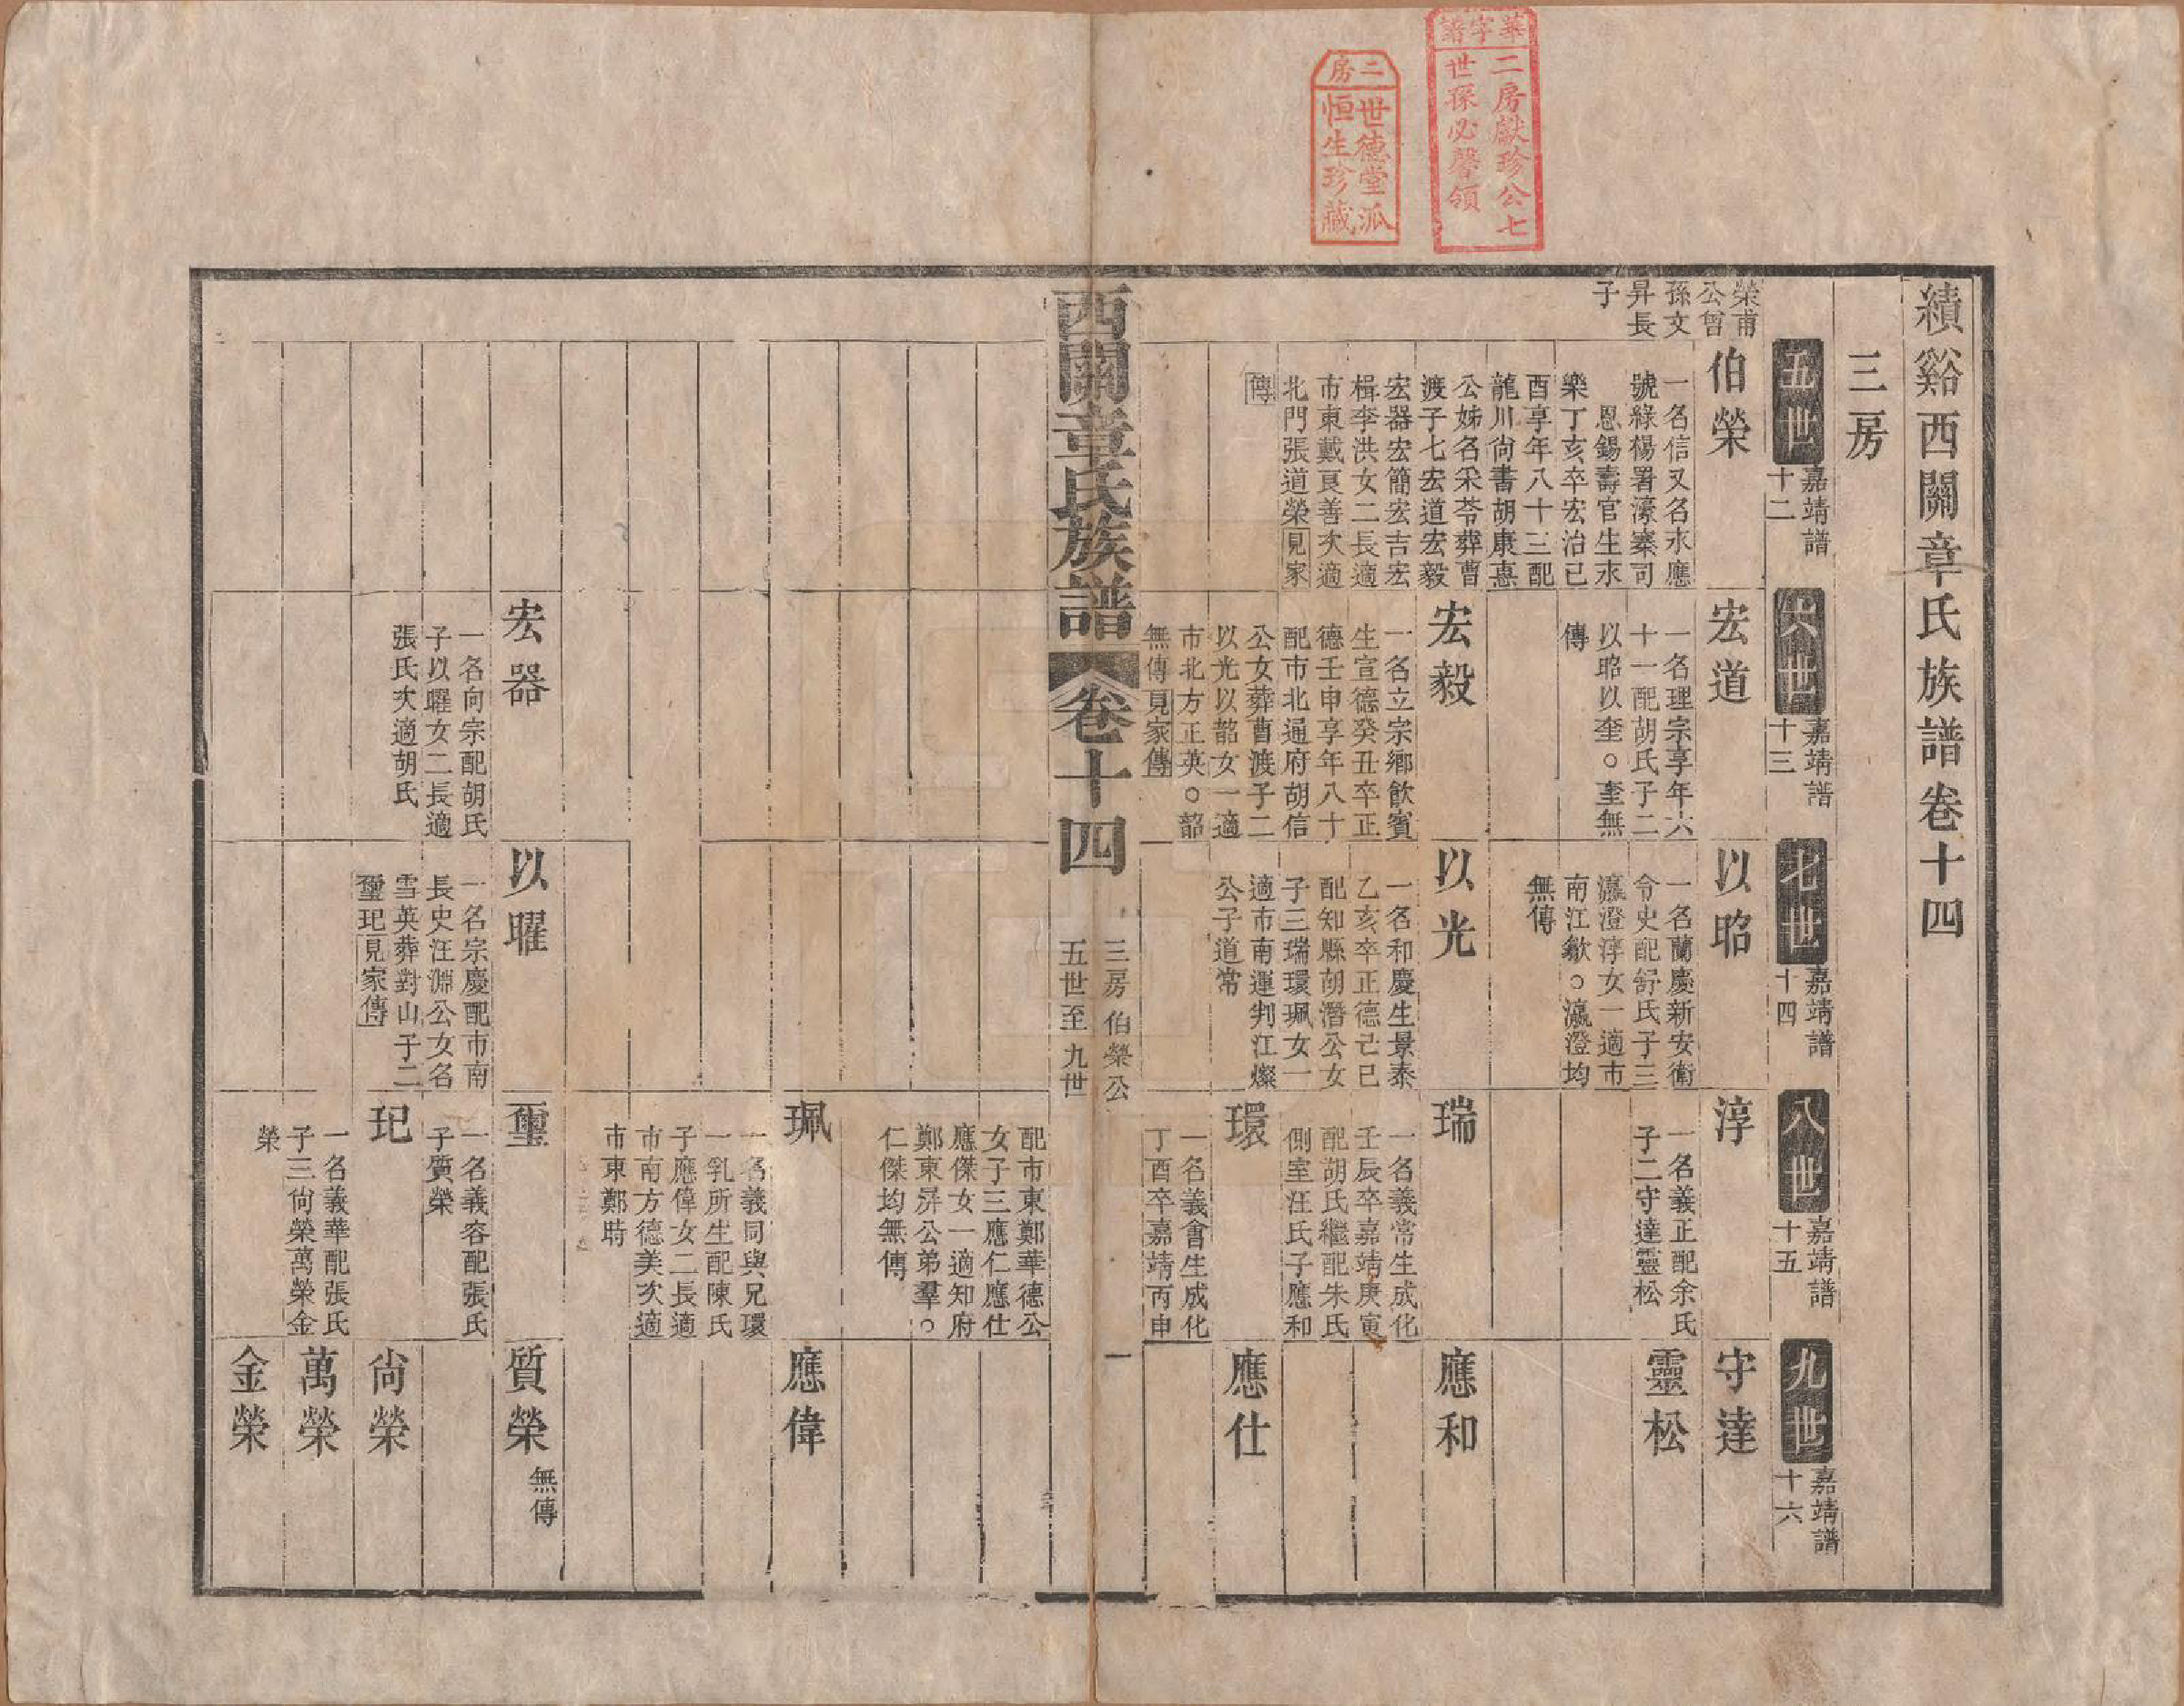 華字譜
二房獻珍公七
世孫必馨領
二房
世德堂派
恒生珍藏
績谿西關章氏族譜卷十四
三房
五世
嘉靖譜
十二
六世
嘉靖譜
十三
七世
嘉靖譜
十四
八世
嘉靖譜
十五
九世
嘉靖譜
十六
榮甫
公曾
孫文
昇長
子
伯榮
一名信又名永應
號綠楊署濠寨司
恩錫壽官生永
樂丁亥卒宏治己
酉享年八十三配
龍川尚書胡康惠
公姊名采苓葬曹
渡子七宏道宏毅
宏器宏簡宏吉宏
楫李洪女二長適
市東戴良善次適
北門張道榮見家
傳
宏道
一名理宗享年六
十一配胡氏子二
以昭以奎○奎無
傳
宏毅
一名立宗鄉飲賓
生宣德癸丑卒正
德壬申享年八十
配市北通府胡信
公女葬曹渡子二
以光以韶女一適
市北方正英○韶
無傳見家傳
以昭
一名蘭慶新安衛
令史配舒氏子三
瀛澄淳女一適市
南江歙○瀛澄均
無傳
以光
一名和慶生景泰
乙亥卒正德己巳
配知縣胡潛公女
子三瑞環珮女一
適市南運判江燦
公子道常
淳
一名義正配余氏
子二守達靈松
瑞
一名義常生成化
壬辰卒嘉靖庚寅
配胡氏繼配朱氏
側室汪氏子應和
環
一名義會生成化
丁酉卒嘉靖丙申
守達
靈松
應和
應仕
西關章氏族譜
卷十四
三房伯榮公
五世至九世
一
配市東鄭華德公
女子三應仁應仕
應傑女一適知府
鄭東昇公弟羣○
仁傑均無傳
珮
一名義同與兄環
一乳所生配陳氏
子應偉女二長適
市南方德美次適
市東鄭時
應偉
宏器
一名向宗配胡氏
子以曜女二長適
張氏次適胡氏
以曜
一名宗慶配市南
長史汪淵公女名
雪英葬對山子二
璽玘見家傳
璽
一名義容配張氏
子質榮
玘
一名義華配張氏
子三尙榮萬榮金
榮
質榮
無傳
尙榮
萬榮
金榮